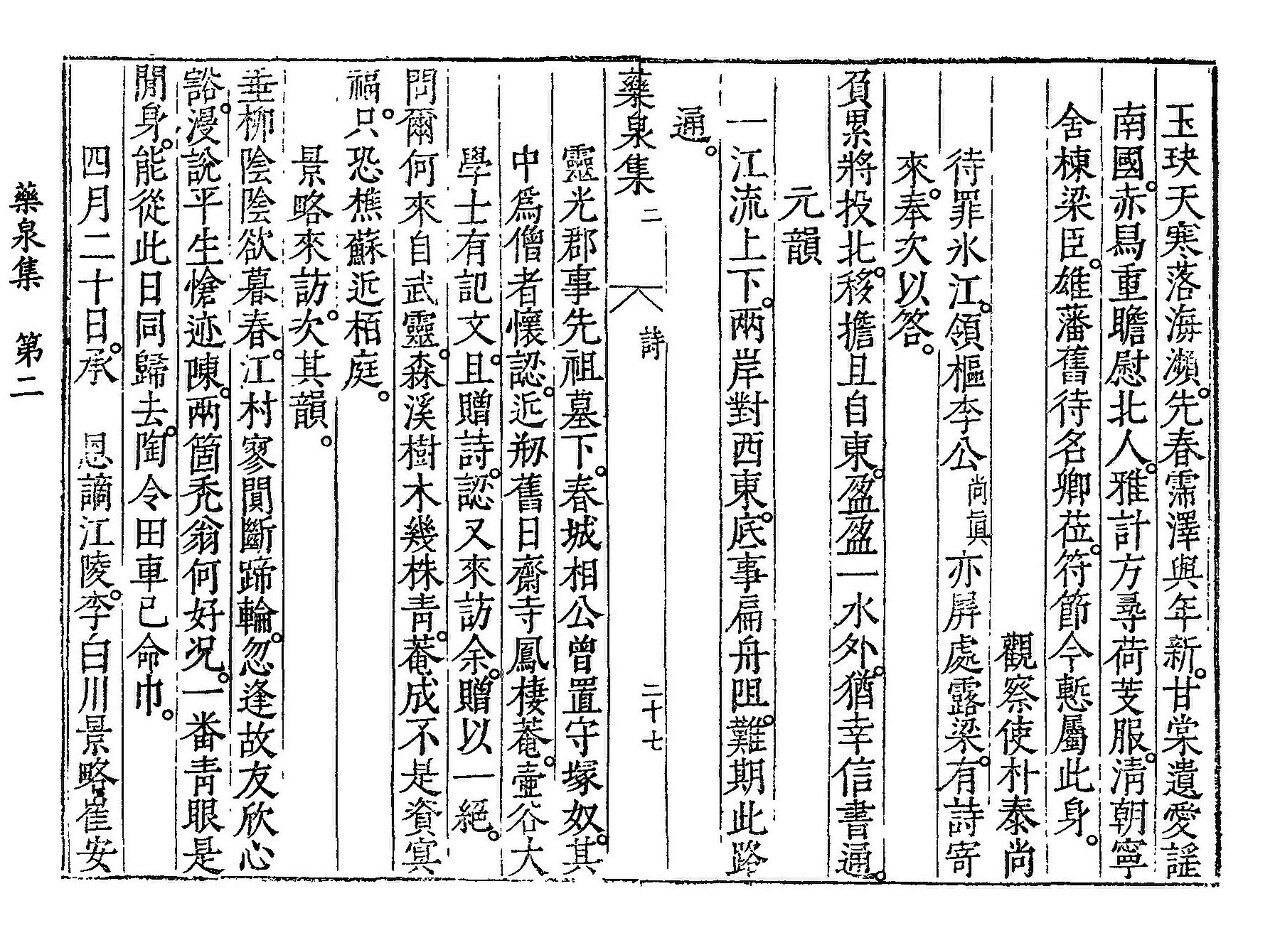 玉玦天寒落海瀕。先春霈澤與年新。甘棠遺愛謠
南國。赤舃重瞻慰北人。雅計方尋荷芰服。淸朝寧
舍棟梁臣。雄藩舊待名卿莅。符節今慙屬此身。
觀察使朴泰尙
待罪氷江。領樞李公尙眞亦屛處露梁。有詩寄
來。奉次以答。
負累將投北。移擔且自東。盈盈一水外。猶幸信書通。
元韻
一江流上下。兩岸對西東。底事扁舟阻。難期此路
通。
藥泉集 二 詩 二十七
靈光郡事先祖墓下。春城相公曾置守塚奴。其
中爲僧者懷認。近刱舊日齋寺鳳棲菴。壺谷大
學士有記文。且贈詩。認又來訪余。贈以一絶。
問爾何來自武靈。森溪樹木幾株靑。菴成不是資冥
福。只恐樵蘇近栢庭。
景略來訪。次其韻。
垂柳陰陰欲暮春。江村寥闃斷蹄輪。忽逢故友欣心
豁。漫說平生愴迹陳。兩箇禿翁何好况。一番靑眼是
閒身。能從此日同歸去。陶令田車已命巾。
四月二十日。承 恩謫江陵。李白川景略。崔安
藥泉集 第二